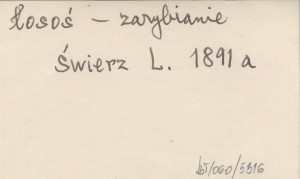 Łosoś – zarybianie
Świerz L. 1891a
bł/060/5316